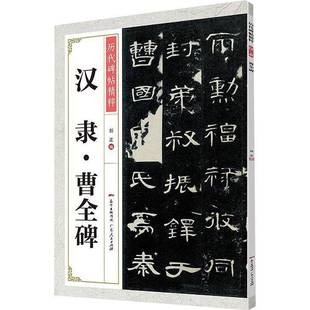 历代碑帖精粹
汉隶·曹全碑
爾勳福祿攸同
封弟叔振鐸于
曹國因氏焉秦